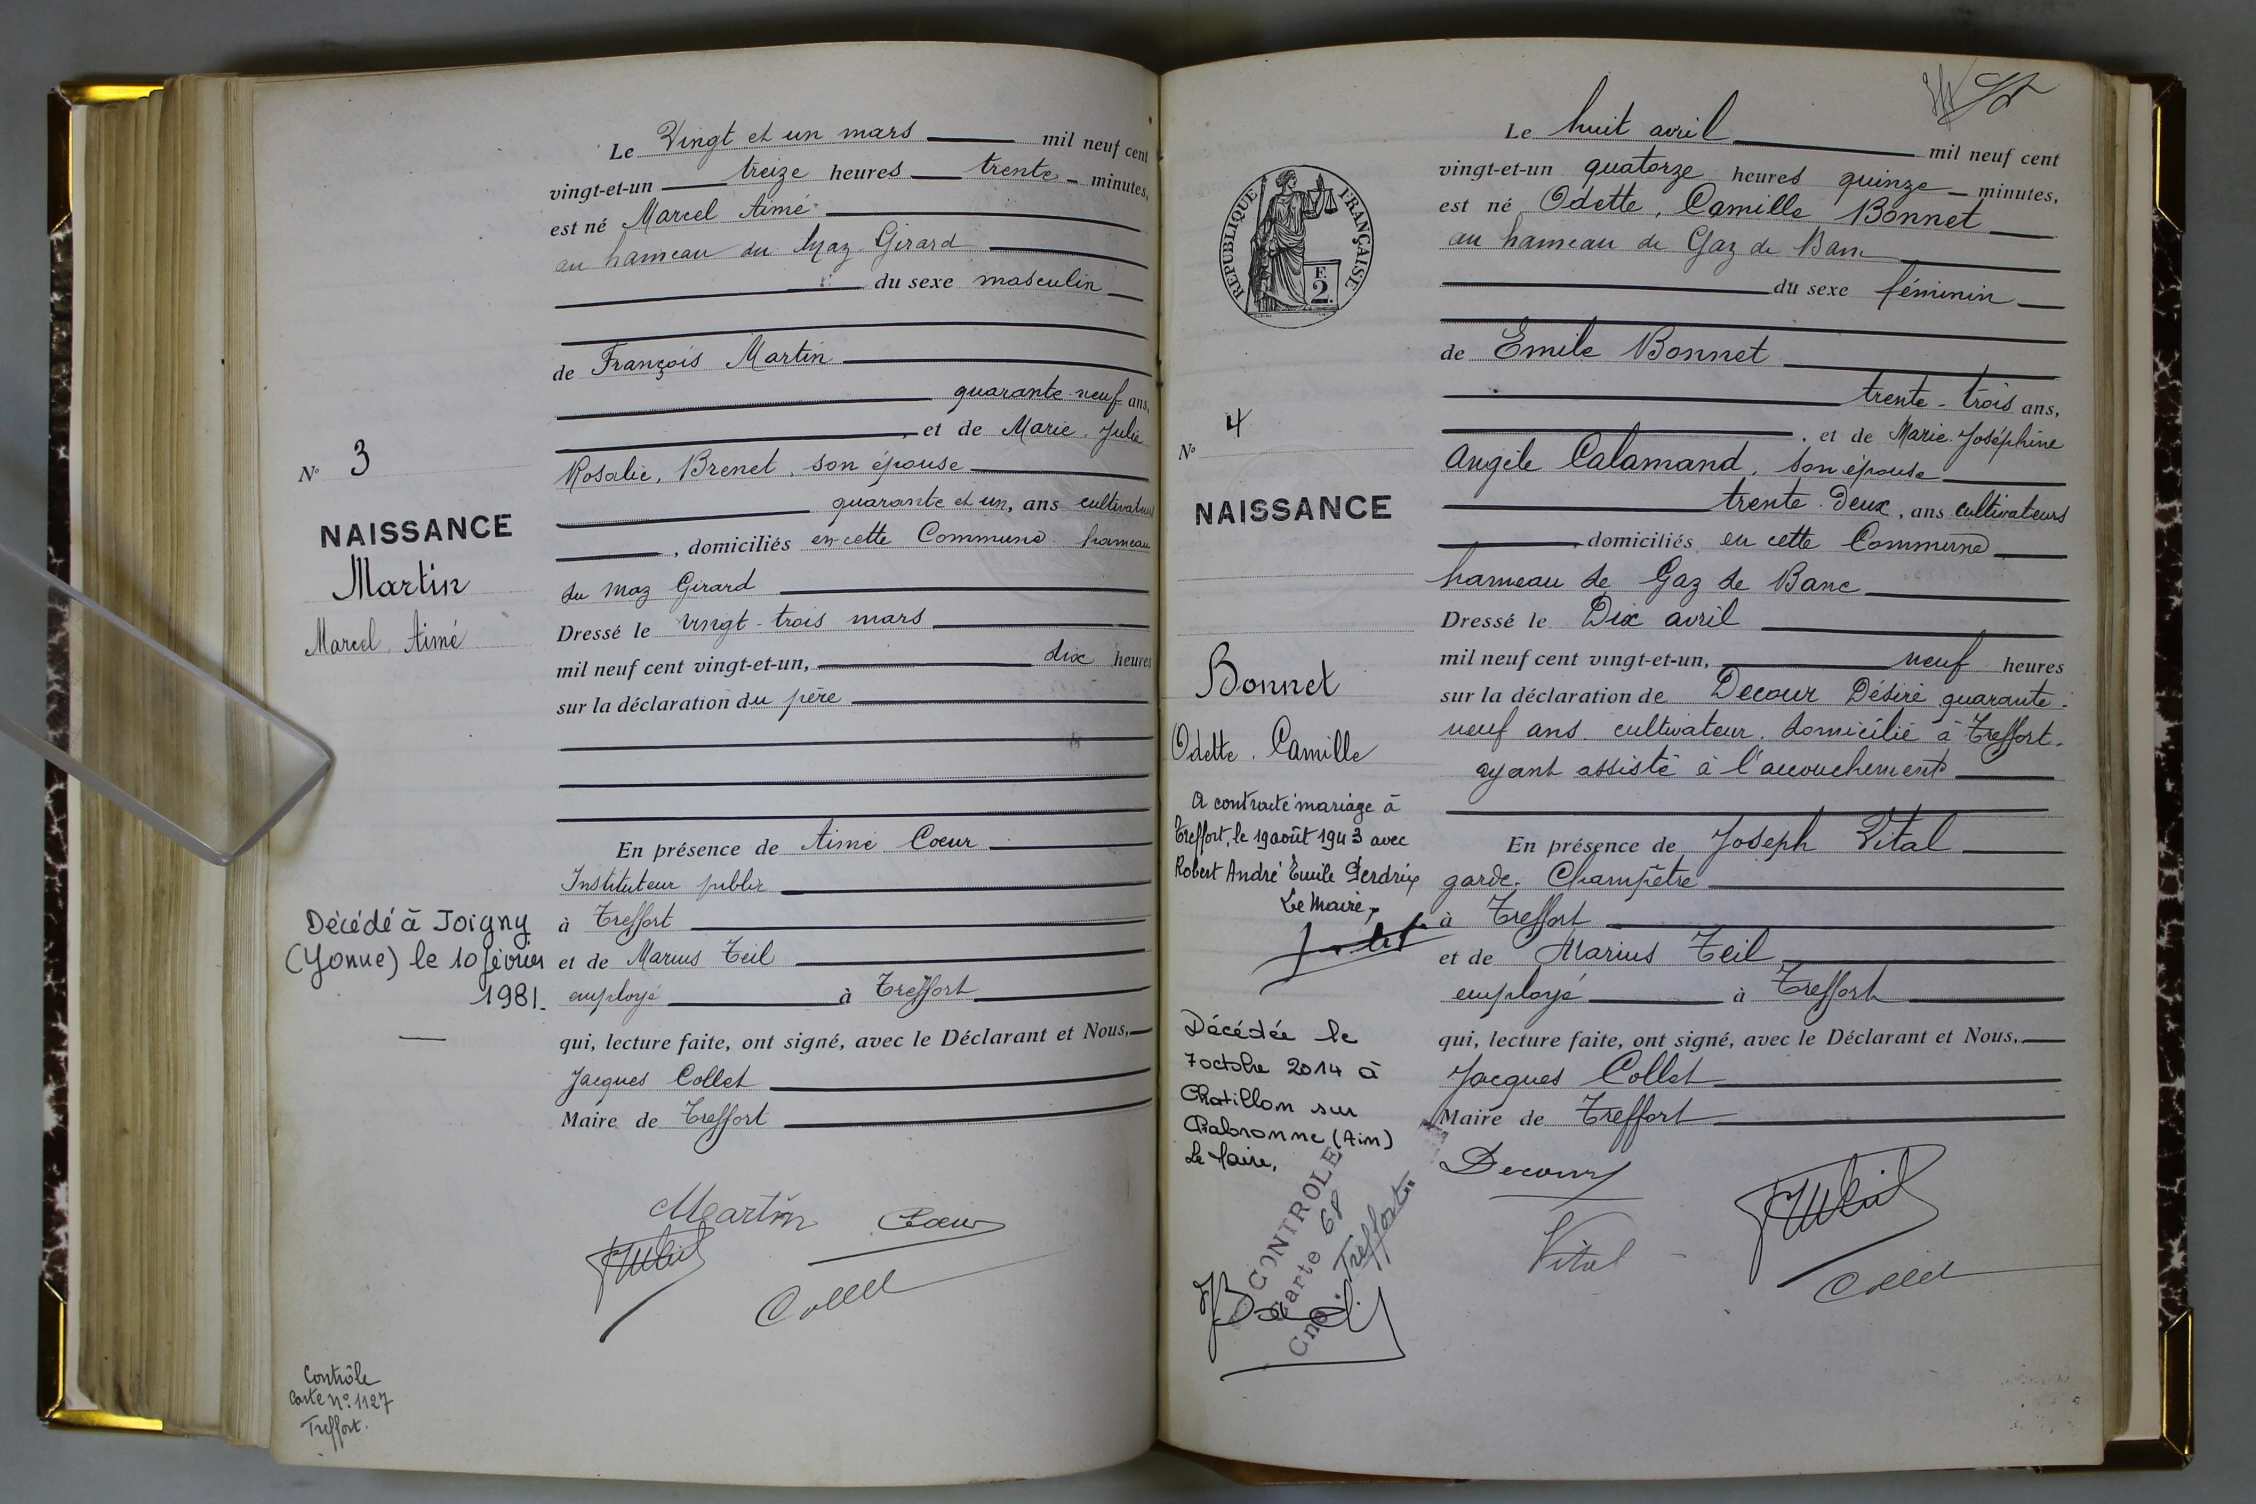 Le Vingt et un mars mil neuf cent
vingt-et-un treize heures trente minutes,
est né Marcel Aimé
au hameau du Maz Girard
du sexe masculin
de François Martin
quarante-neuf ans,
et de Marie Julie
Rosalie, Brenet, son épouse
quarante et un, ans cultivateurs
, domiciliés en cette Commune hameau
du Maz Girard
Dressé le vingt-trois mars
mil neuf cent vingt-et-un, dix heures
sur la déclaration du père
En présence de Aimé Coeur
Instituteur public
à Treffort
et de Marius Teil
employé à Treffort
qui, lecture faite, ont signé, avec le Déclarant et Nous,
Jacques Collet
Maire de Treffort
Martin Coeur
Collet
N° 3
NAISSANCE
Martin
Marcel Aimé
Décédé à Joigny
(Yonne) le 10 février
1981.
Contrôle
Carte N° 1127
Treffort.
RÉPUBLIQUE FRANÇAISE
F.
2.
N° 4
NAISSANCE
Bonnet
Odette. Camille
A contracté mariage à
Treffort, le 19 août 1943 avec
Robert André Emile Perdrix
Le Maire,
Décédée le
7 octobre 2014 à
Chatillon sur
Chalaronne (Ain)
Le Maire,
CONTROLE
Carte 68
Cne: Treffort
Le huit avril mil neuf cent
vingt-et-un quatorze heures quinze minutes,
est né Odette, Camille Bonnet
au hameau de Gaz de Banc
du sexe féminin
de Emile Bonnet
trente-trois ans,
, et de Marie Joséphine
Angèle Calamand, son épouse
trente-deux, ans cultivateurs
, domiciliés en cette Commune
hameau de Gaz de Banc
Dressé le Dix avril
mil neuf cent vingt-et-un, neuf heures
sur la déclaration de Decour Désiré quarante-
neuf ans. cultivateur. domicilié à Treffort.
ayant assisté à l'accouchement
En présence de Joseph Vital
garde-Champêtre
à Treffort
et de Marius Teil
employé à Treffort
qui, lecture faite, ont signé, avec le Déclarant et Nous,
Jacques Collet
Maire de Treffort
Decour
Vital
Collet